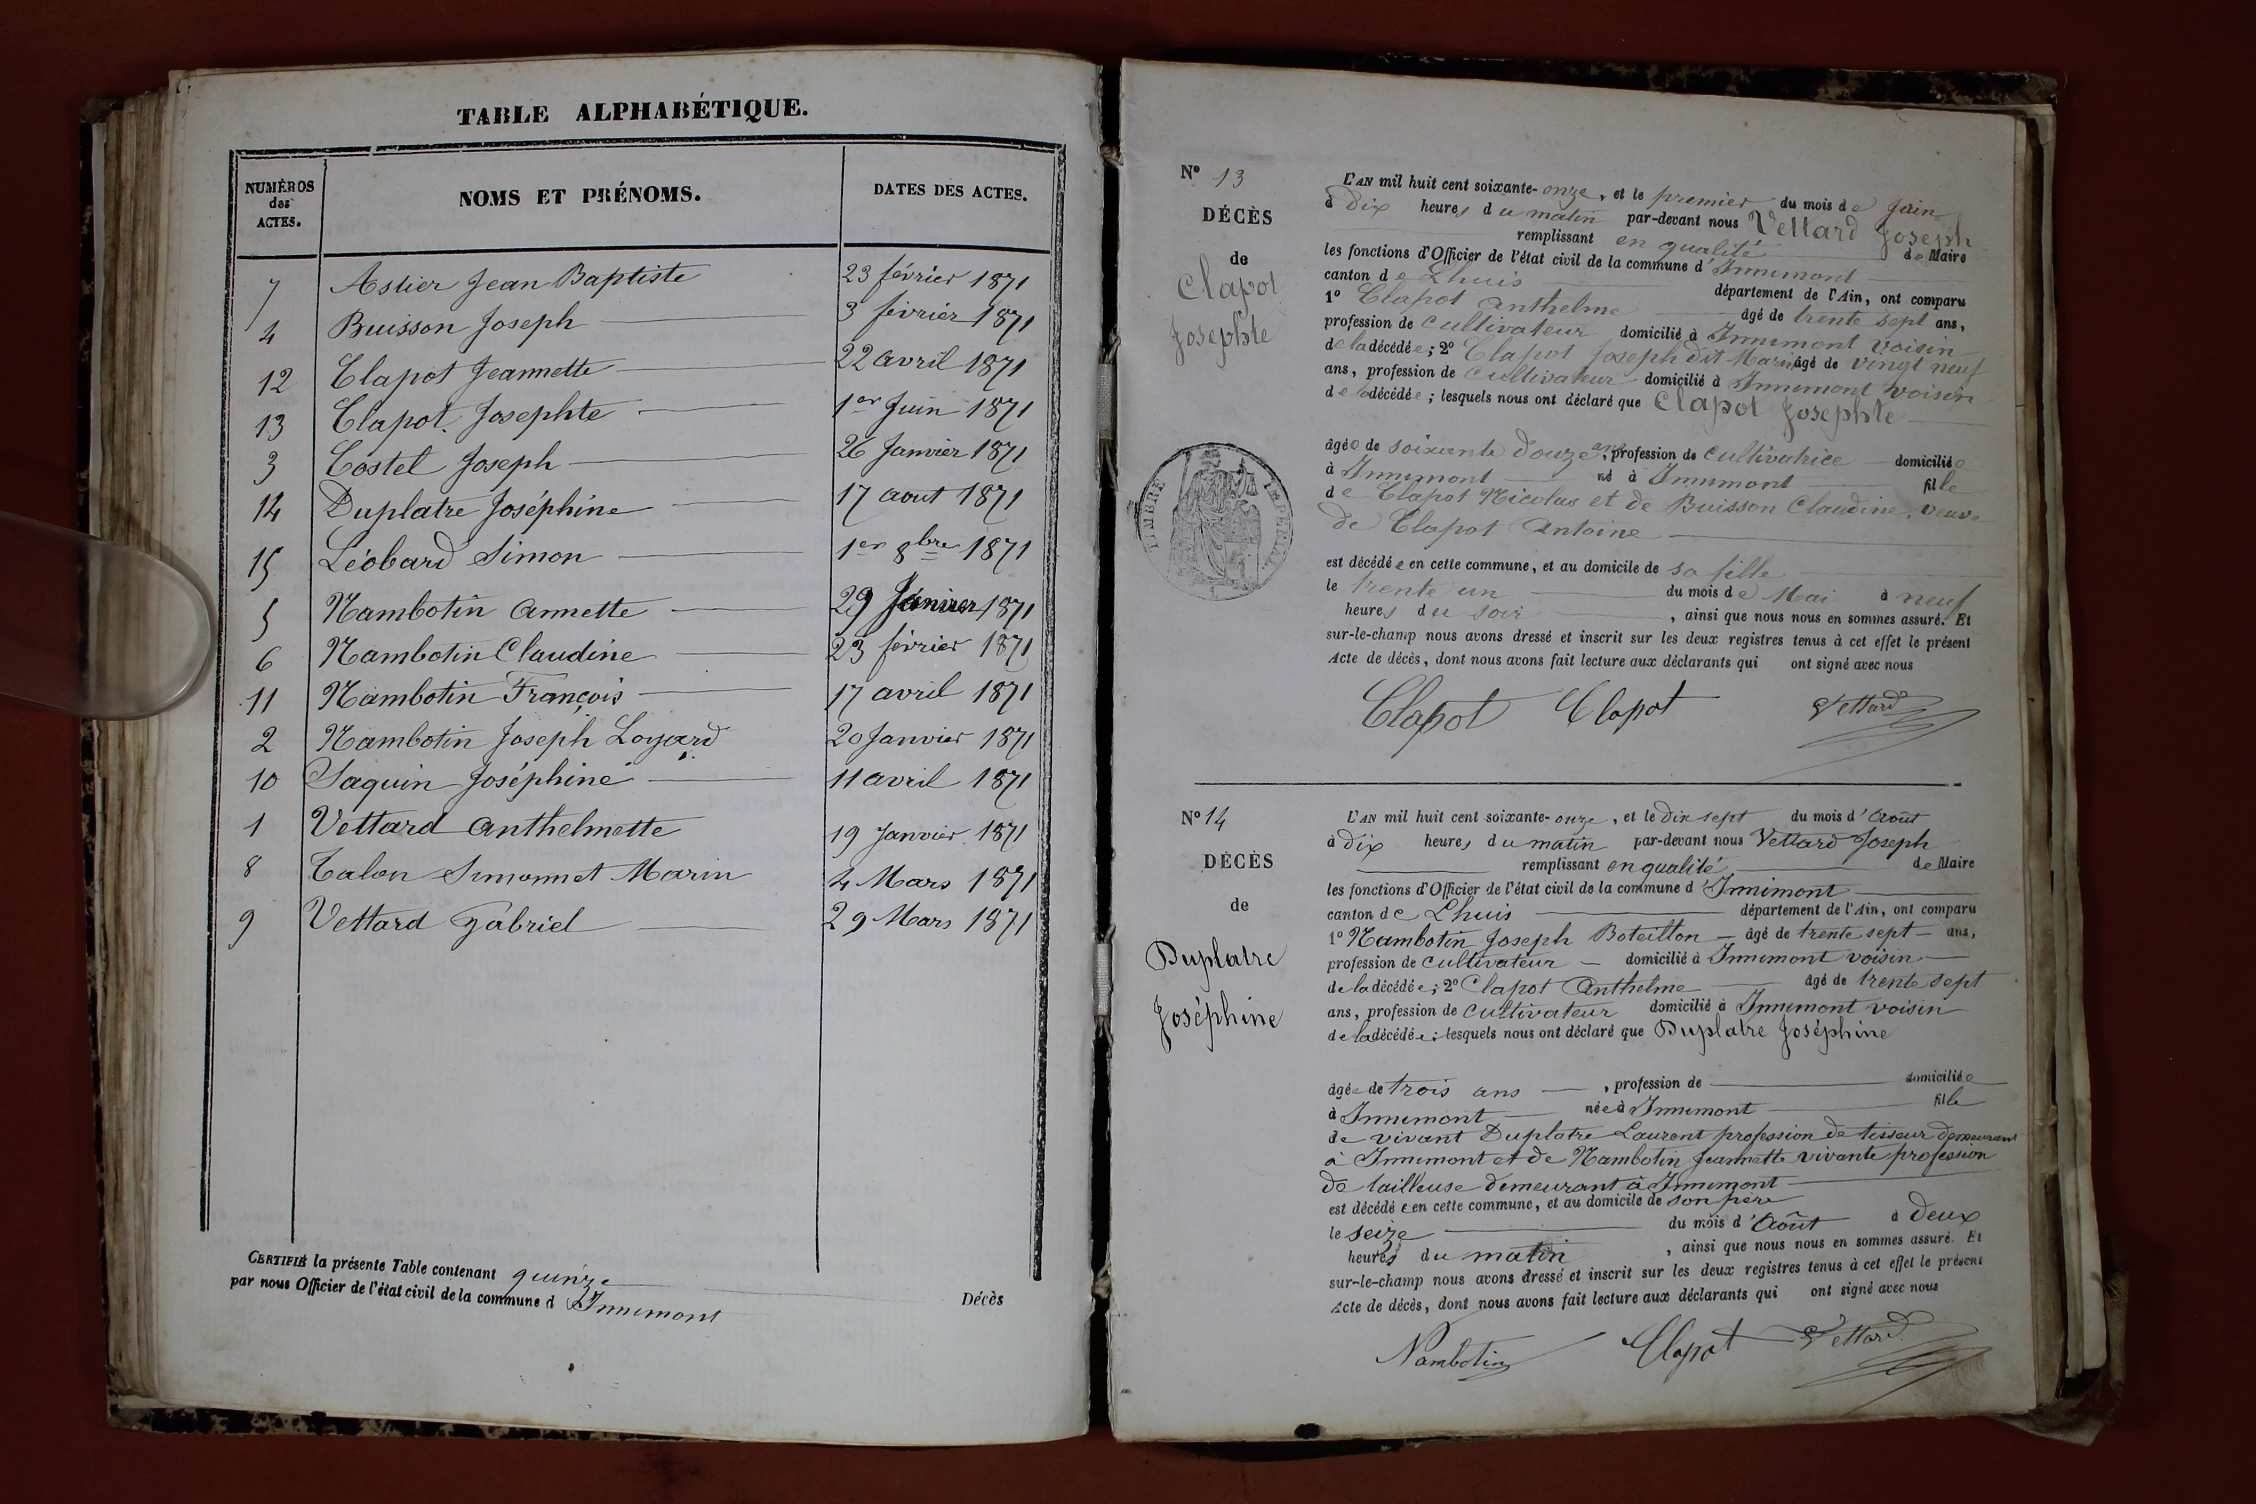 TABLE ALPHABÉTIQUE.
NUMÉROS des ACTES. NOMS ET PRÉNOMS. DATES DES ACTES.
7 Astier Jean Baptiste 23 février 1871
4 Buisson Joseph 3 février 1871
12 Clapot Jeannette 22 avril 1871
13 Clapot Josephte 1er Juin 1871
3 Costel Joseph 26 Janvier 1871
14 Duplatre Joséphine 17 aout 1871
15 Léobard Simon 1er 8bre 1871
5 Nambotin Annette 29 Janvier 1871
6 Nambotin Claudine 23 février 1871
11 Nambotin François 17 avril 1871
2 Nambotin Joseph Loyard 20 Janvier 1871
10 Saquin Joséphine 11 avril 1871
1 Vettard Anthelmette 19 Janvier 1871
8 Talon Simonnet Marin 4 Mars 1871
9 Vettard Gabriel 29 Mars 1871
CERTIFIÉ la présente Table contenant quinze Décès
par nous Officier de l'état civil de la commune d Innimont
N° 13
DÉCÈS
de
Clapot
Josephte
TIMBRE IMPÉRIAL
L'AN mil huit cent soixante-onze, et le premier du mois de Juin
à dix heures du matin par-devant nous Vettard Joseph
remplissant en qualité de Maire
les fonctions d'Officier de l'état civil de la commune d'Innimont
canton de Lhuis département de l'Ain, ont comparu
1° Clapot Anthelme âgé de trente sept ans,
profession de cultivateur domicilié à Innimont voisin
de la décédée; 2° Clapot Joseph dit Marin âgé de vingt neuf
ans, profession de cultivateur domicilié à Innimont voisin
de la décédée; lesquels nous ont déclaré que Clapot Josephte
âgée de soixante douze ans, profession de cultivatrice domiciliée
à Innimont né à Innimont fille
de Clapot Nicolas et de Buisson Claudine, veuve
de Clapot Antoine
est décédée en cette commune, et au domicile de sa fille
le trente un du mois de Mai à neuf
heures du soir, ainsi que nous nous en sommes assuré. Et
sur-le-champ nous avons dressé et inscrit sur les deux registres tenus à cet effet le présent
Acte de décès, dont nous avons fait lecture aux déclarants qui ont signé avec nous
Clapot Clapot Vettard
N° 14
DÉCÈS
de
Duplatre
Joséphine
L'AN mil huit cent soixante-onze, et le dix sept du mois d'Août
à dix heures du matin par-devant nous Vettard Joseph
remplissant en qualité de Maire
les fonctions d'Officier de l'état civil de la commune d'Innimont
canton de Lhuis département de l'Ain, ont comparu
1° Nambotin Joseph Boteillon âgé de trente sept ans,
profession de cultivateur domicilié à Innimont voisin
de la décédée; 2° Clapot Anthelme âgé de trente sept
ans, profession de cultivateur domicilié à Innimont voisin
de la décédée; lesquels nous ont déclaré que Duplatre Joséphine
âgée de trois ans, profession de domiciliée
à Innimont née à Innimont fille
de vivant Duplatre Laurent profession de tisseur demeurant
à Innimont et de Nambotin Jeannette vivante profession
de tailleuse demeurant à Innimont
est décédée en cette commune, et au domicile de son père
le seize du mois d'Août à deux
heures du matin, ainsi que nous nous en sommes assuré. Et
sur-le-champ nous avons dressé et inscrit sur les deux registres tenus à cet effet le présent
Acte de décès, dont nous avons fait lecture aux déclarants qui ont signé avec nous
Nambotin Clapot Vettard